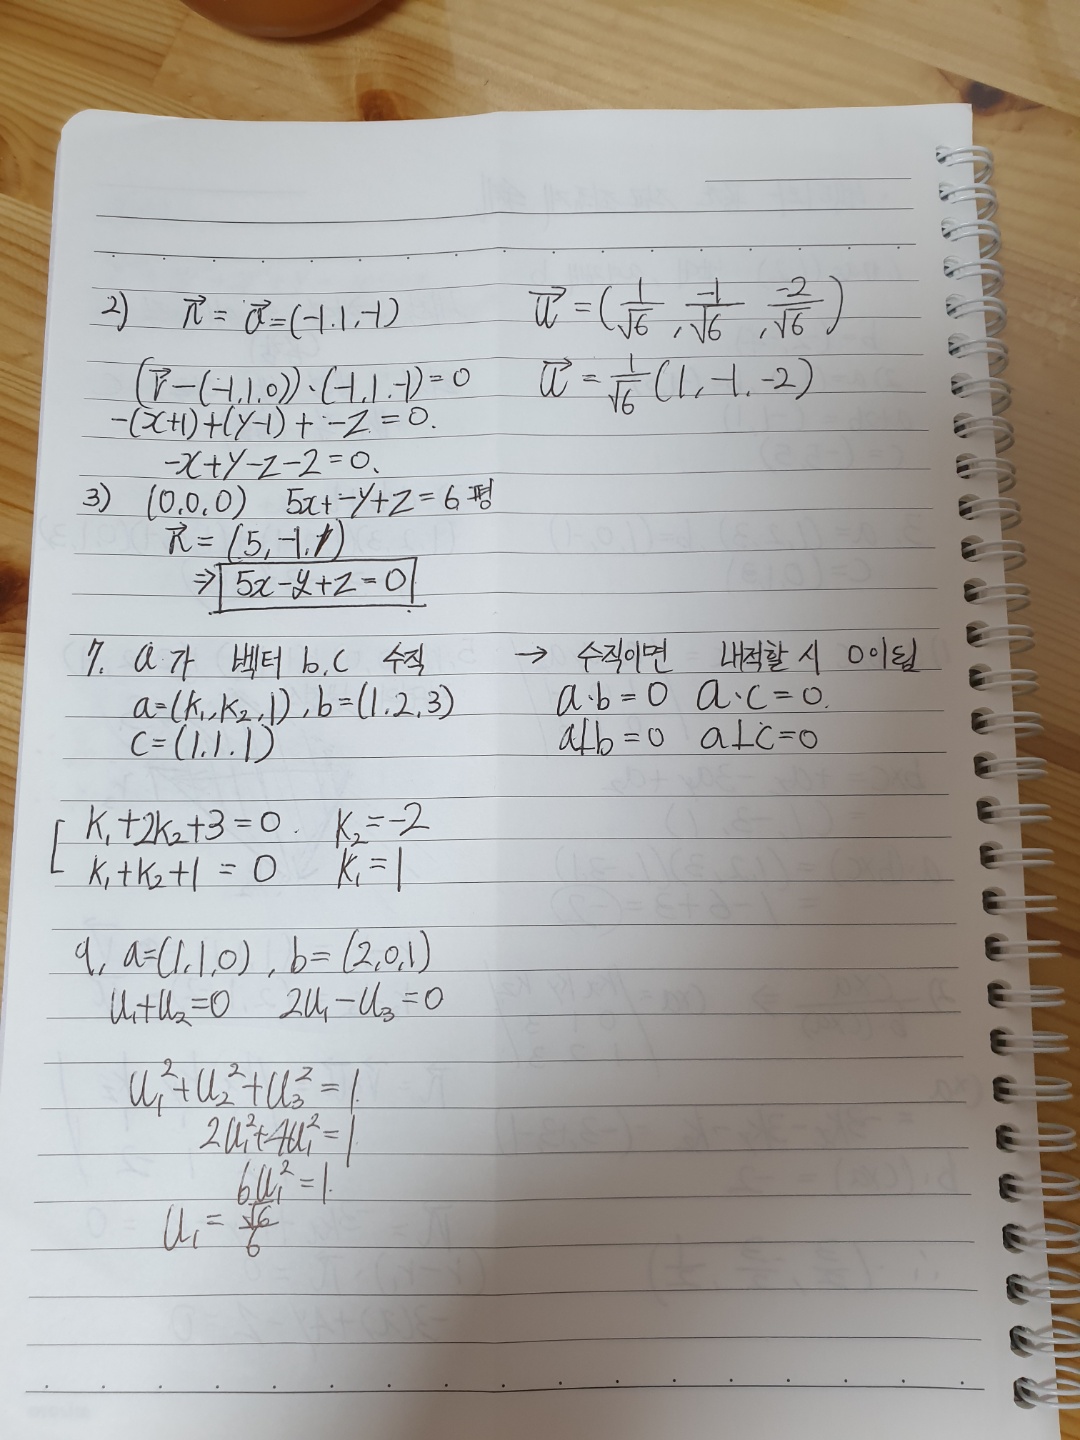 2) n⃗ = a⃗=(-1.1,-1)
(r⃗-(-1,1,0))·(-1,1.-1)=0
-(x+1)+(y-1)+ -z=0.
-x+y-z-2=0.
u⃗=(1/√6, -1/√6, -2/√6)
u⃗=1/√6(1,-1.-2)
3) (0,0,0) 5x+-y+z=6 평
n⃗=(5,-1,1)
⇒ 5x-y+z=0
7. a가 벡터 b,c 수직 → 수직이면 내적할 시 0이됨
a=(k₁,k₂,1), b=(1.2,3) a·b=0 a·c=0.
c=(1.1.1) a⊥b=0 a⊥c=0
k₁+2k₂+3=0. k₂=-2
k₁+k₂+1=0 k₁=1
9, a=(1,1,0), b=(2,0,1)
u₁+u₂=0 2u₁-u₃=0
u₁²+u₂²+u₃²=1.
2u₁²+4u₁²=1.
6u₁²=1.
u₁=√6/6